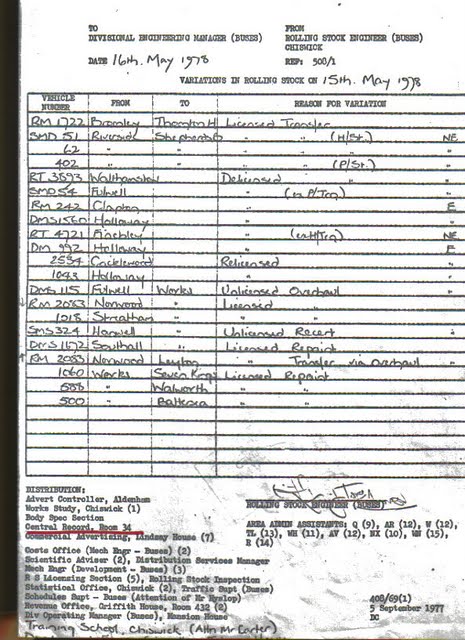 TO
DIVISIONAL ENGINEERING MANAGER (BUSES)
FROM
ROLLING STOCK ENGINEER (BUSES)
CHISWICK
DATE 16th. May 1978
REF: 508/1
VARIATIONS IN ROLLING STOCK ON 15th. May 1978
VEHICLE NUMBER FROM TO REASON FOR VARIATION
RM 1722 Bromley Thornton H Licensed Transfer
SMD 51 Riverside Shepherds B " " (H/St.) NE
62 " " " " "
402 " " " " (P/St.) "
RT 3893 Walthamstow Delicensed "
SMD 54 Fulwell " (ex P/Trg) "
RM 242 Clapton " E
DMS 1560 Holloway " "
RT 4721 Finchley " (ex H/Trg) NE
DM 992 Holloway " E
2554 Cricklewood Relicensed "
1043 Holloway " "
DMS 115 Fulwell Works Unlicensed Overhaul "
RM 2083 Norwood " Licensed " "
1018 Streatham " " " "
SMS 324 Hanwell " Unlicensed Recert "
DMS 1672 Southall " Licensed Repaint
RM 2083 Norwood Leyton " Transfer via overhaul "
1060 Works Seven Kings Licensed Repaint
588 " Walworth " "
500 " Battersea " "
DISTRIBUTION:
Advert Controller, Aldenham
Works Study, Chiswick (1)
Body Spec Section
Central Record, Room 34
Commercial Advertising, Lindsay House (7)
Costs Office (Mech Engr - Buses) (2)
Scientific Adviser (2), Distribution Services Manager
Mech Engr (Development - Buses) (3)
R S Licensing Section (5), Rolling Stock Inspection
Statistical Office, Chiswick (2), Traffic Supt (Buses)
Schedules Supt - Buses (Attention of Mr Hyslop)
Revenue Office, Griffith House, Room 432 (2)
Div Operating Manager (Buses), Mansion House
Training School, Chiswick (Attn Mr Carter)
ROLLING STOCK ENGINEER (BUSES)
AREA ADMIN ASSISTANTS: Q (9), AR (12), W (12),
TL (13), WH (11), AV (12), NX (10), WN (15),
B (14)
408/69(1)
5 September 1977
DG